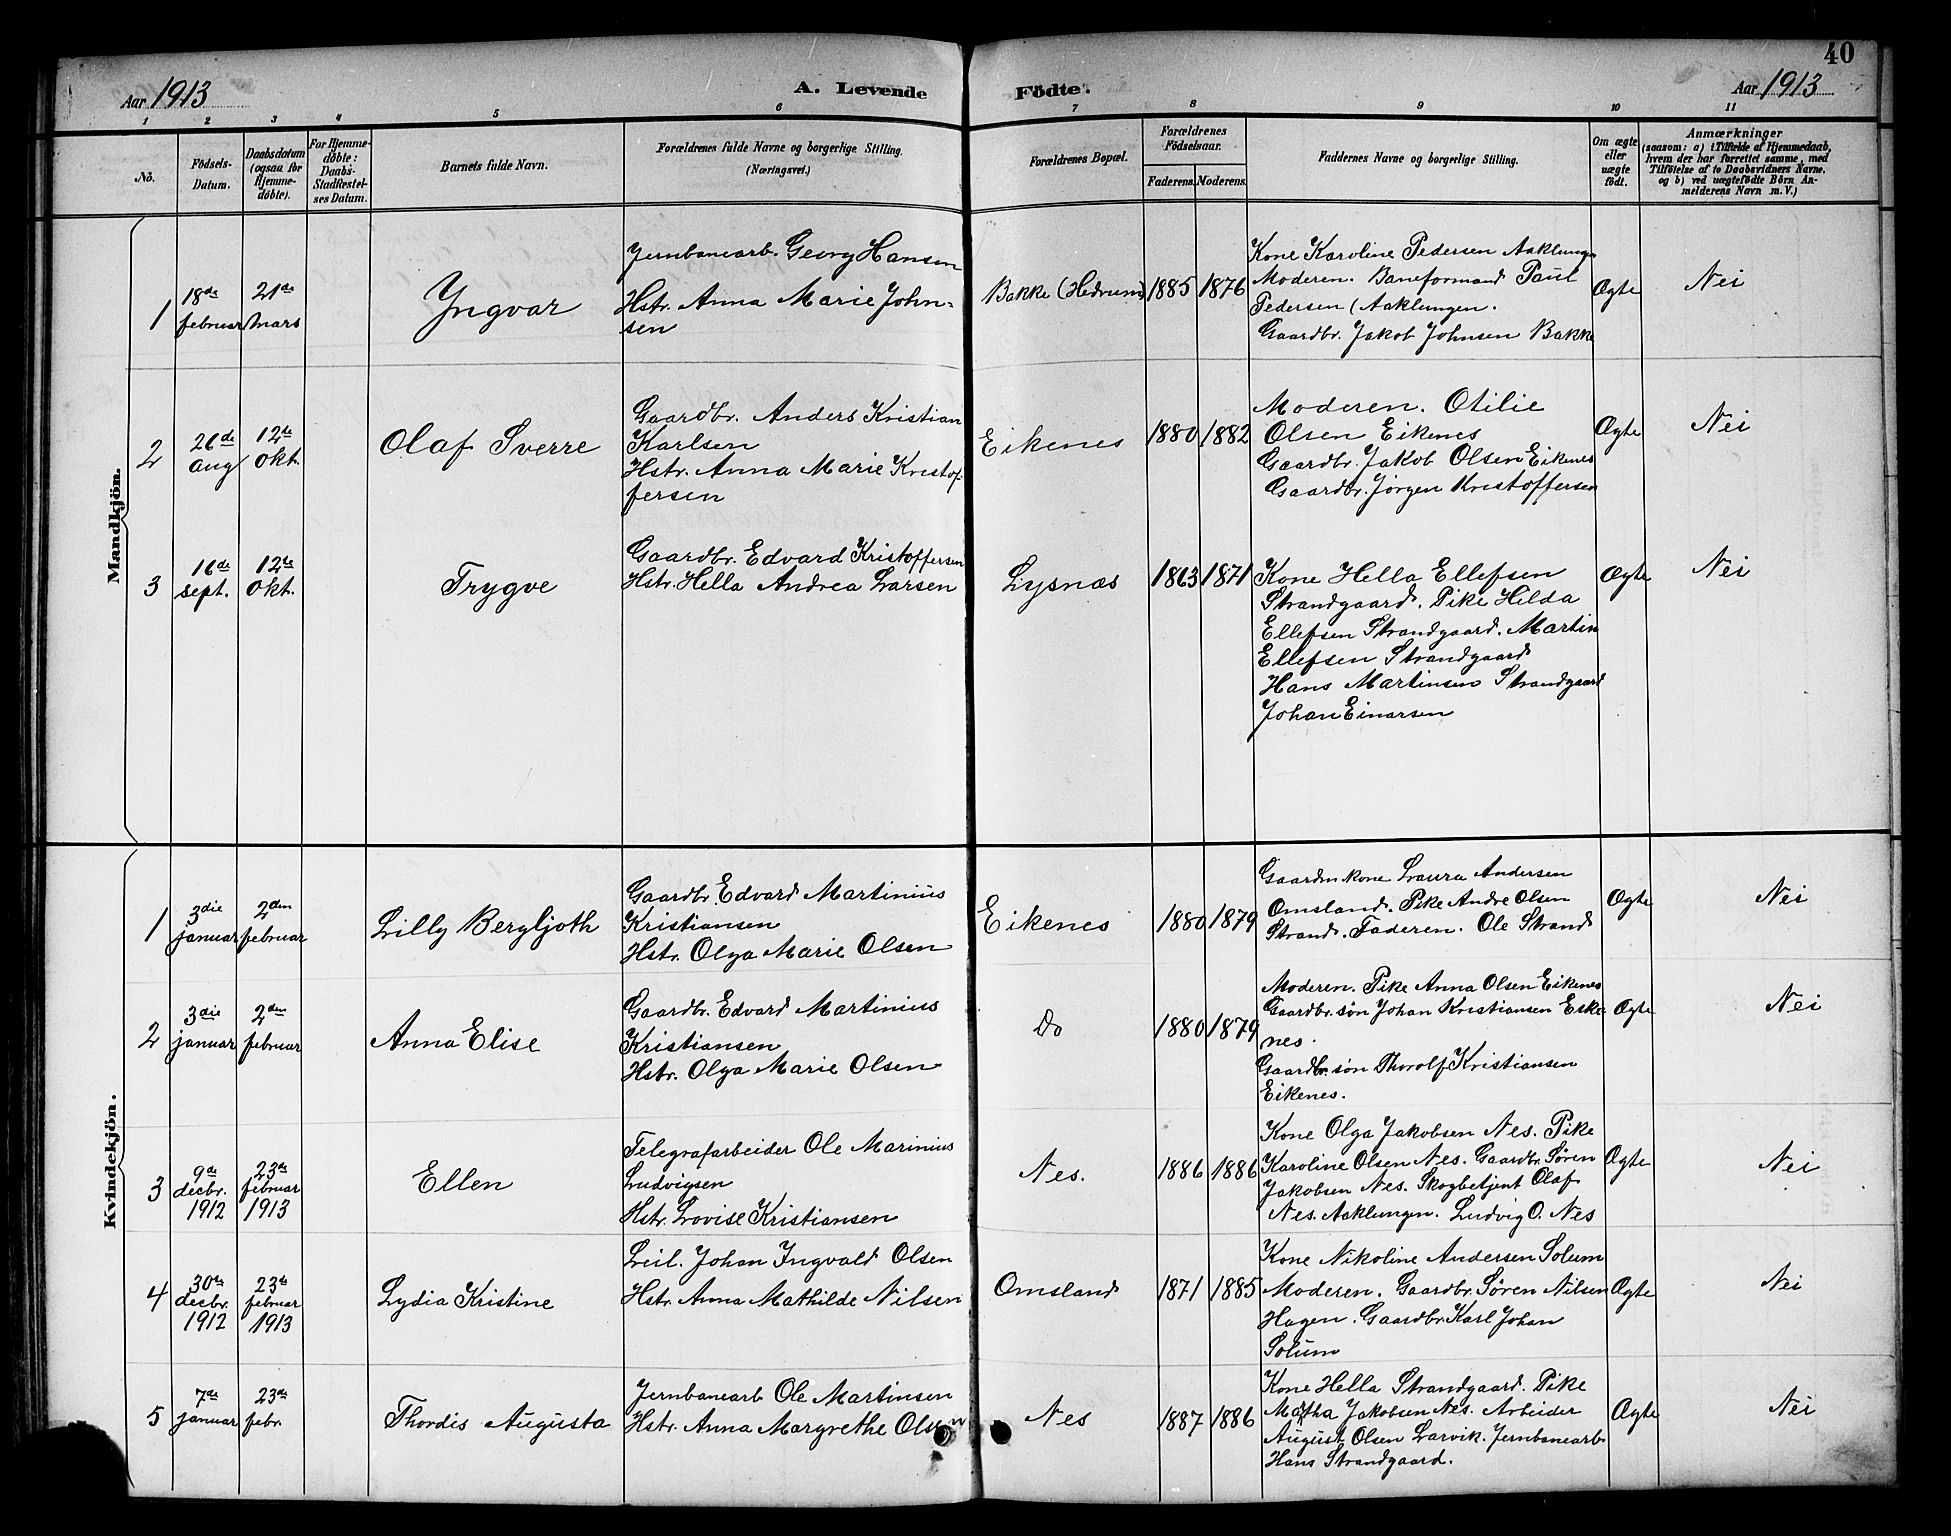 40
Aar 1913
A. Levende Födte.
Aar 1913
1 2 3 4 5 6 7 8 9 10 11
No.
Födsels-
Datum.
Daabsdatum
(ogsaa for
Hjemme-
döbte).
For Hjemme-
döbte:
Daabs-
Stadfæstel-
ses Datum.
Barnets fulde Navn.
Forældrenes fulde Navne og borgerlige Stilling.
(Næringsvei.)
Forældrenes Bopæl.
Forældrenes
Födselsaar.
Faderens. Moderens.
Faddernes Navne og borgerlige Stilling.
Om ægte
eller
uægte
födt.
Anmærkninger
(saasom: a) i Tilfælde af Hjemmedaab,
hvem der har forrettet samme, med
Tilföielse af to Daabsvidners Navne,
og b) ved uægtefödte Börn An-
melderens Navn m. V.)
Mandkjön.
1
18de
februar
21de
mars
Yngvar
Jernbanearb. Georg Hansen
Hstr. Anna Marie John-
sen
Bakke (Hedrum)
1885
1876
Kone Karoline Pedersen Aaklungen
Moderen. Baneformand Paul
Pedersen (Aaklungen.
Gaardbr. Jakob Johnsen Bakke
Ægte
Nei
2
26de
aug
12te
okt.
Olaf Sverre
Gaardbr. Anders Kristian
Karlsen
Hstr. Anna Marie Kristof-
fersen
Eikenes
1880
1882
Moderen. Otilie
Olsen Eikenes
Gaardbr. Jakob Olsen Eikenes
Gaardbr. Jørgen Kristoffersen
Ægte
Nei
3
16de
sept.
12te
okt.
Trygve
Gaardbr. Edvard Kristoffersen
Hstr. Hella Andrea Larsen
Lysnæs
1863
1871
Kone Hella Ellefsen
Strandgaard. Pike Hilda
Ellefsen Strandgaard. Martin
Ellefsen Strandgaard
Hans Martinsen Strandgaard
Johan Einarsen
Ægte
Nei
Kvindekjön.
1
3die
januar
2den
februar
Lilly Bergljoth
Gaardbr. Edvard Martinius
Kristiansen
Hstr. Olga Marie Olsen
Eikenes
1880
1879
Gaardm. kone Laura Andersen
Omsland. Pike Andre Olsen
Strand. Faderen. Ole Strand
Ægte
Nei
2
3die
januar
2den
februar
Anna Elise
Gaardbr. Edvard Martinius
Kristiansen
Hstr. Olga Marie Olsen
Do
1880
1879
Moderen. Pike Anna Olsen Eikenes
Gaardbr. søn Johan Kristiansen Eike
nes.
Gaardbr. søn Thorolf Kristiansen
Eikenes.
Ægte
Nei
3
9de
decbr.
1912
23de
februar
1913
Ellen
Telegrafarbeider Ole Marinius
Ludvigsen
Hstr. Lovise Kristiansen
Nes.
1886
1886
Kone Olga Jakobsen Nes. Pike
Karoline Olsen Nes. Gaardbr. Sören
Jakobsen Nes. Skogbetjent Olaf
Nes. Aaklungen. Ludvig O. Nes
Ægte
Nei
4
30te
decbr.
1912
23de
februar
1913
Lydia Kristine
Leil. Johan Ingvald Olsen
Hstr. Anna Mathilde Nilsen
Omsland
1871
1885
Kone Nikoline Andersen Solum
Moderen. Gaardbr. Sören Nilsen
Hagen. Gaardbr. Karl Johan
Solum
Ægte
Nei
5
7de
januar
23de
febr.
Thordis Augusta
Jernbanearb Ole Martinsen
Hstr. Anna Margrethe Olsen
Nes
1887
1886
Kone Hella Strandgaard. Pike
Martha Jakobsen Nes. Arbeider
August Olsen Larvik. Jernbanearb.
Hans Strandgaard.
Ægte
Nei